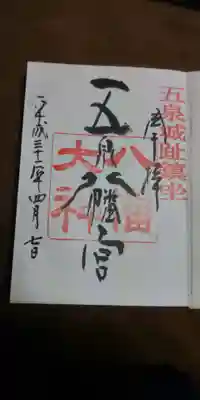 五泉城趾鎮坐
五泉八幡宮
八幡
大神
平成三十一年四月七日